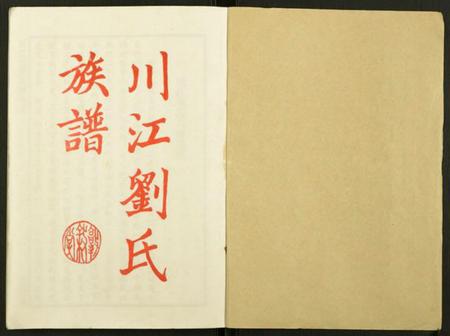 川江劉氏
族譜